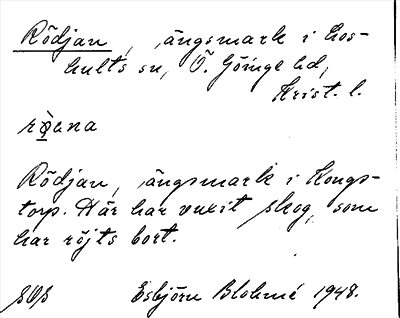 Rödjan, ängsmark i Los-
hults sn, Ö. Göinge hd,
Krist. l.
Rödjan, ängsmark i Hongs-
torp. Där har vuxit skog, som
har röjts bort.
Esbjörn Blohmé 1948.